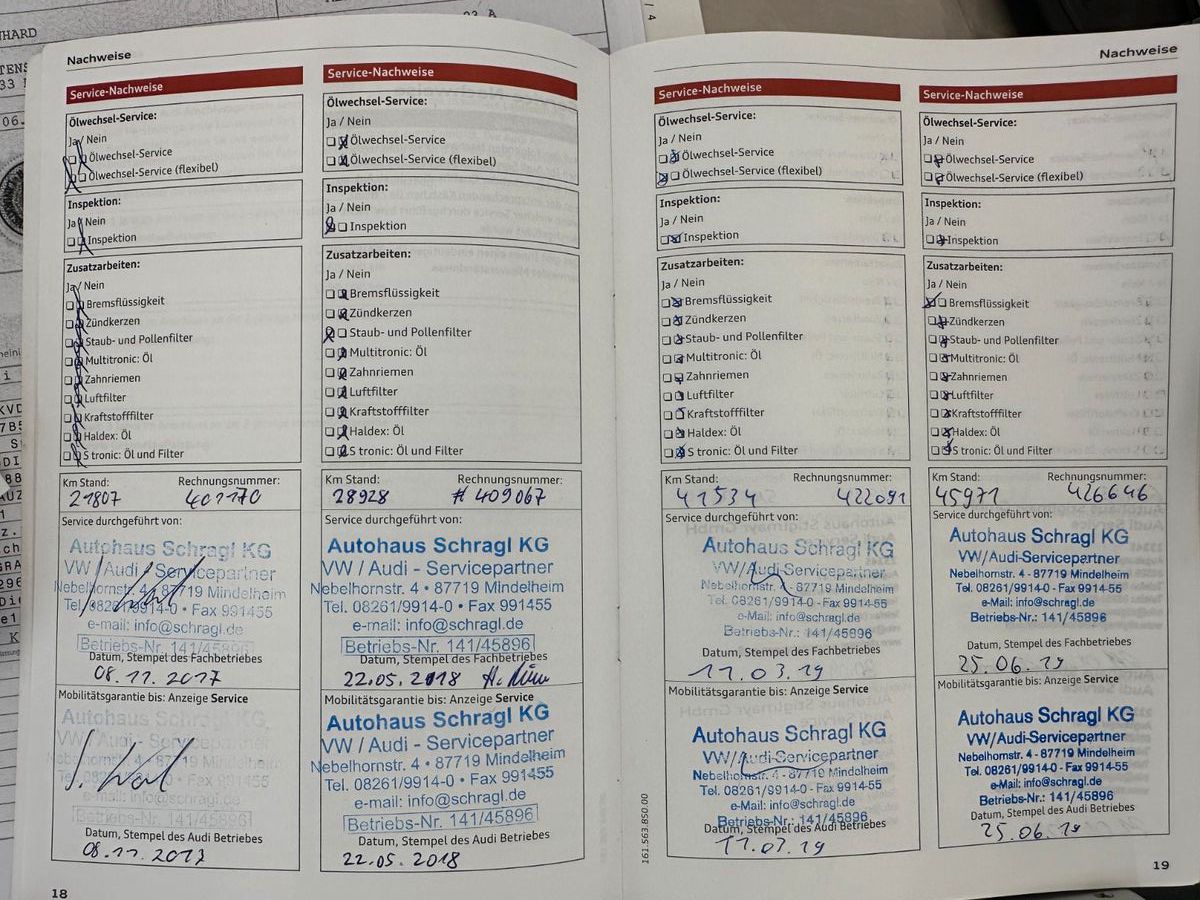 Nachweise
Service-Nachweise
Ölwechsel-Service:
Ja / Nein
Ölwechsel-Service
Ölwechsel-Service (flexibel)
Inspektion:
Ja / Nein
Inspektion
Zusatzarbeiten:
Ja / Nein
Bremsflüssigkeit
Zündkerzen
Staub- und Pollenfilter
Multitronic: Öl
Zahnriemen
Luftfilter
Kraftstofffilter
Haldex: Öl
S tronic: Öl und Filter
Km Stand: Rechnungsnummer:
21807 401170
Service durchgeführt von:
Autohaus Schragl KG
VW / Audi - Servicepartner
Nebelhornstr. 4 • 87719 Mindelheim
Tel. 08261/9914-0 • Fax 991455
e-mail: info@schragl.de
Betriebs-Nr. 141/45896
Datum, Stempel des Fachbetriebes
08.11.2017
Mobilitätsgarantie bis: Anzeige Service
Autohaus Schragl KG
VW / Audi - Servicepartner
Nebelhornstr. 4 • 87719 Mindelheim
Tel. 08261/9914-0 • Fax 991455
e-mail: info@schragl.de
Betriebs-Nr. 141/45896
Datum, Stempel des Audi Betriebes
08.11.2017
18
Service-Nachweise
Ölwechsel-Service:
Ja / Nein
Ölwechsel-Service
Ölwechsel-Service (flexibel)
Inspektion:
Ja / Nein
Inspektion
Zusatzarbeiten:
Ja / Nein
Bremsflüssigkeit
Zündkerzen
Staub- und Pollenfilter
Multitronic: Öl
Zahnriemen
Luftfilter
Kraftstofffilter
Haldex: Öl
S tronic: Öl und Filter
Km Stand: Rechnungsnummer:
28928 # 409067
Service durchgeführt von:
Autohaus Schragl KG
VW / Audi - Servicepartner
Nebelhornstr. 4 • 87719 Mindelheim
Tel. 08261/9914-0 • Fax 991455
e-mail: info@schragl.de
Betriebs-Nr. 141/45896
Datum, Stempel des Fachbetriebes
22.05.2018
Mobilitätsgarantie bis: Anzeige Service
Autohaus Schragl KG
VW / Audi - Servicepartner
Nebelhornstr. 4 • 87719 Mindelheim
Tel. 08261/9914-0 • Fax 991455
e-mail: info@schragl.de
Betriebs-Nr. 141/45896
Datum, Stempel des Audi Betriebes
22.05.2018
Nachweise
Service-Nachweise
Ölwechsel-Service:
Ja / Nein
Ölwechsel-Service
Ölwechsel-Service (flexibel)
Inspektion:
Ja / Nein
Inspektion
Zusatzarbeiten:
Ja / Nein
Bremsflüssigkeit
Zündkerzen
Staub- und Pollenfilter
Multitronic: Öl
Zahnriemen
Luftfilter
Kraftstofffilter
Haldex: Öl
S tronic: Öl und Filter
Km Stand: Rechnungsnummer:
41534 422091
Service durchgeführt von:
Autohaus Schragl KG
VW/Audi-Servicepartner
Nebelhornstr. 4 - 87719 Mindelheim
Tel. 08261/9914-0 - Fax 9914-55
e-Mail: info@schragl.de
Betriebs-Nr.: 141/45896
Datum, Stempel des Fachbetriebes
11.03.19
Mobilitätsgarantie bis: Anzeige Service
Autohaus Schragl KG
VW/Audi-Servicepartner
Nebelhornstr. 4 - 87719 Mindelheim
Tel. 08261/9914-0 - Fax 9914-55
e-Mail: info@schragl.de
Betriebs-Nr.: 141/45896
Datum, Stempel des Audi Betriebes
11.03.19
161.563.850.00
Service-Nachweise
Ölwechsel-Service:
Ja / Nein
Ölwechsel-Service
Ölwechsel-Service (flexibel)
Inspektion:
Ja / Nein
Inspektion
Zusatzarbeiten:
Ja / Nein
Bremsflüssigkeit
Zündkerzen
Staub- und Pollenfilter
Multitronic: Öl
Zahnriemen
Luftfilter
Kraftstofffilter
Haldex: Öl
S tronic: Öl und Filter
Km Stand: Rechnungsnummer:
45971 426646
Service durchgeführt von:
Autohaus Schragl KG
VW/Audi-Servicepartner
Nebelhornstr. 4 - 87719 Mindelheim
Tel. 08261/9914-0 - Fax 9914-55
e-Mail: info@schragl.de
Betriebs-Nr.: 141/45896
Datum, Stempel des Fachbetriebes
25.06.19
Mobilitätsgarantie bis: Anzeige Service
Autohaus Schragl KG
VW/Audi-Servicepartner
Nebelhornstr. 4 - 87719 Mindelheim
Tel. 08261/9914-0 - Fax 9914-55
e-Mail: info@schragl.de
Betriebs-Nr.: 141/45896
Datum, Stempel des Audi Betriebes
25.06.19
19